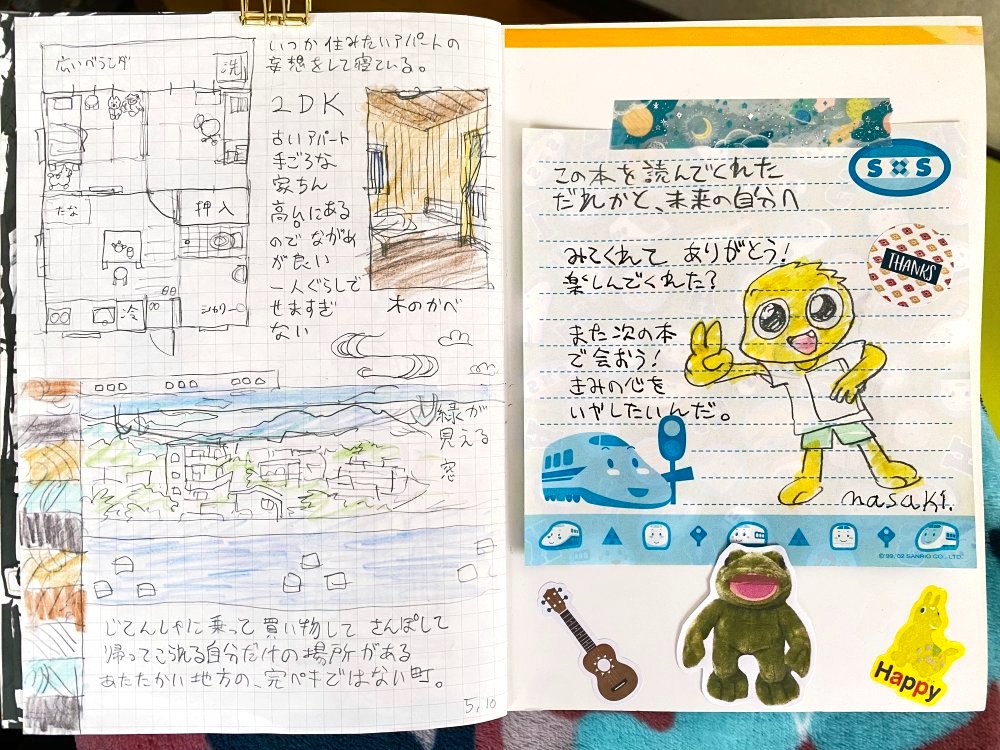 広いベランダ
洗
たな
押入
冷
シャワー
いつか住みたいアパートの
妄想をして寝ている。
2DK
古いアパート
手ごろな
家ちん
高台にある
のでながめ
がたい
一人ぐらしで
せますぎ
ない
木のかべ
緑が
見える
窓
じてんしゃに乗って買い物してさんぽして
帰ってこられる自分だけの場所がある
あたたかい地方の、完ペキではない町。
5,10
この本を読んでくれた
だれかと、未来の自分へ
みてくれて ありがとう!
楽しんでくれた?
また次の本
で会おう!
きみの心を
いやしたいんだ。
masaki.
SXS
THANKS
©'99,'02 SANRIO CO., LTD.
Happy